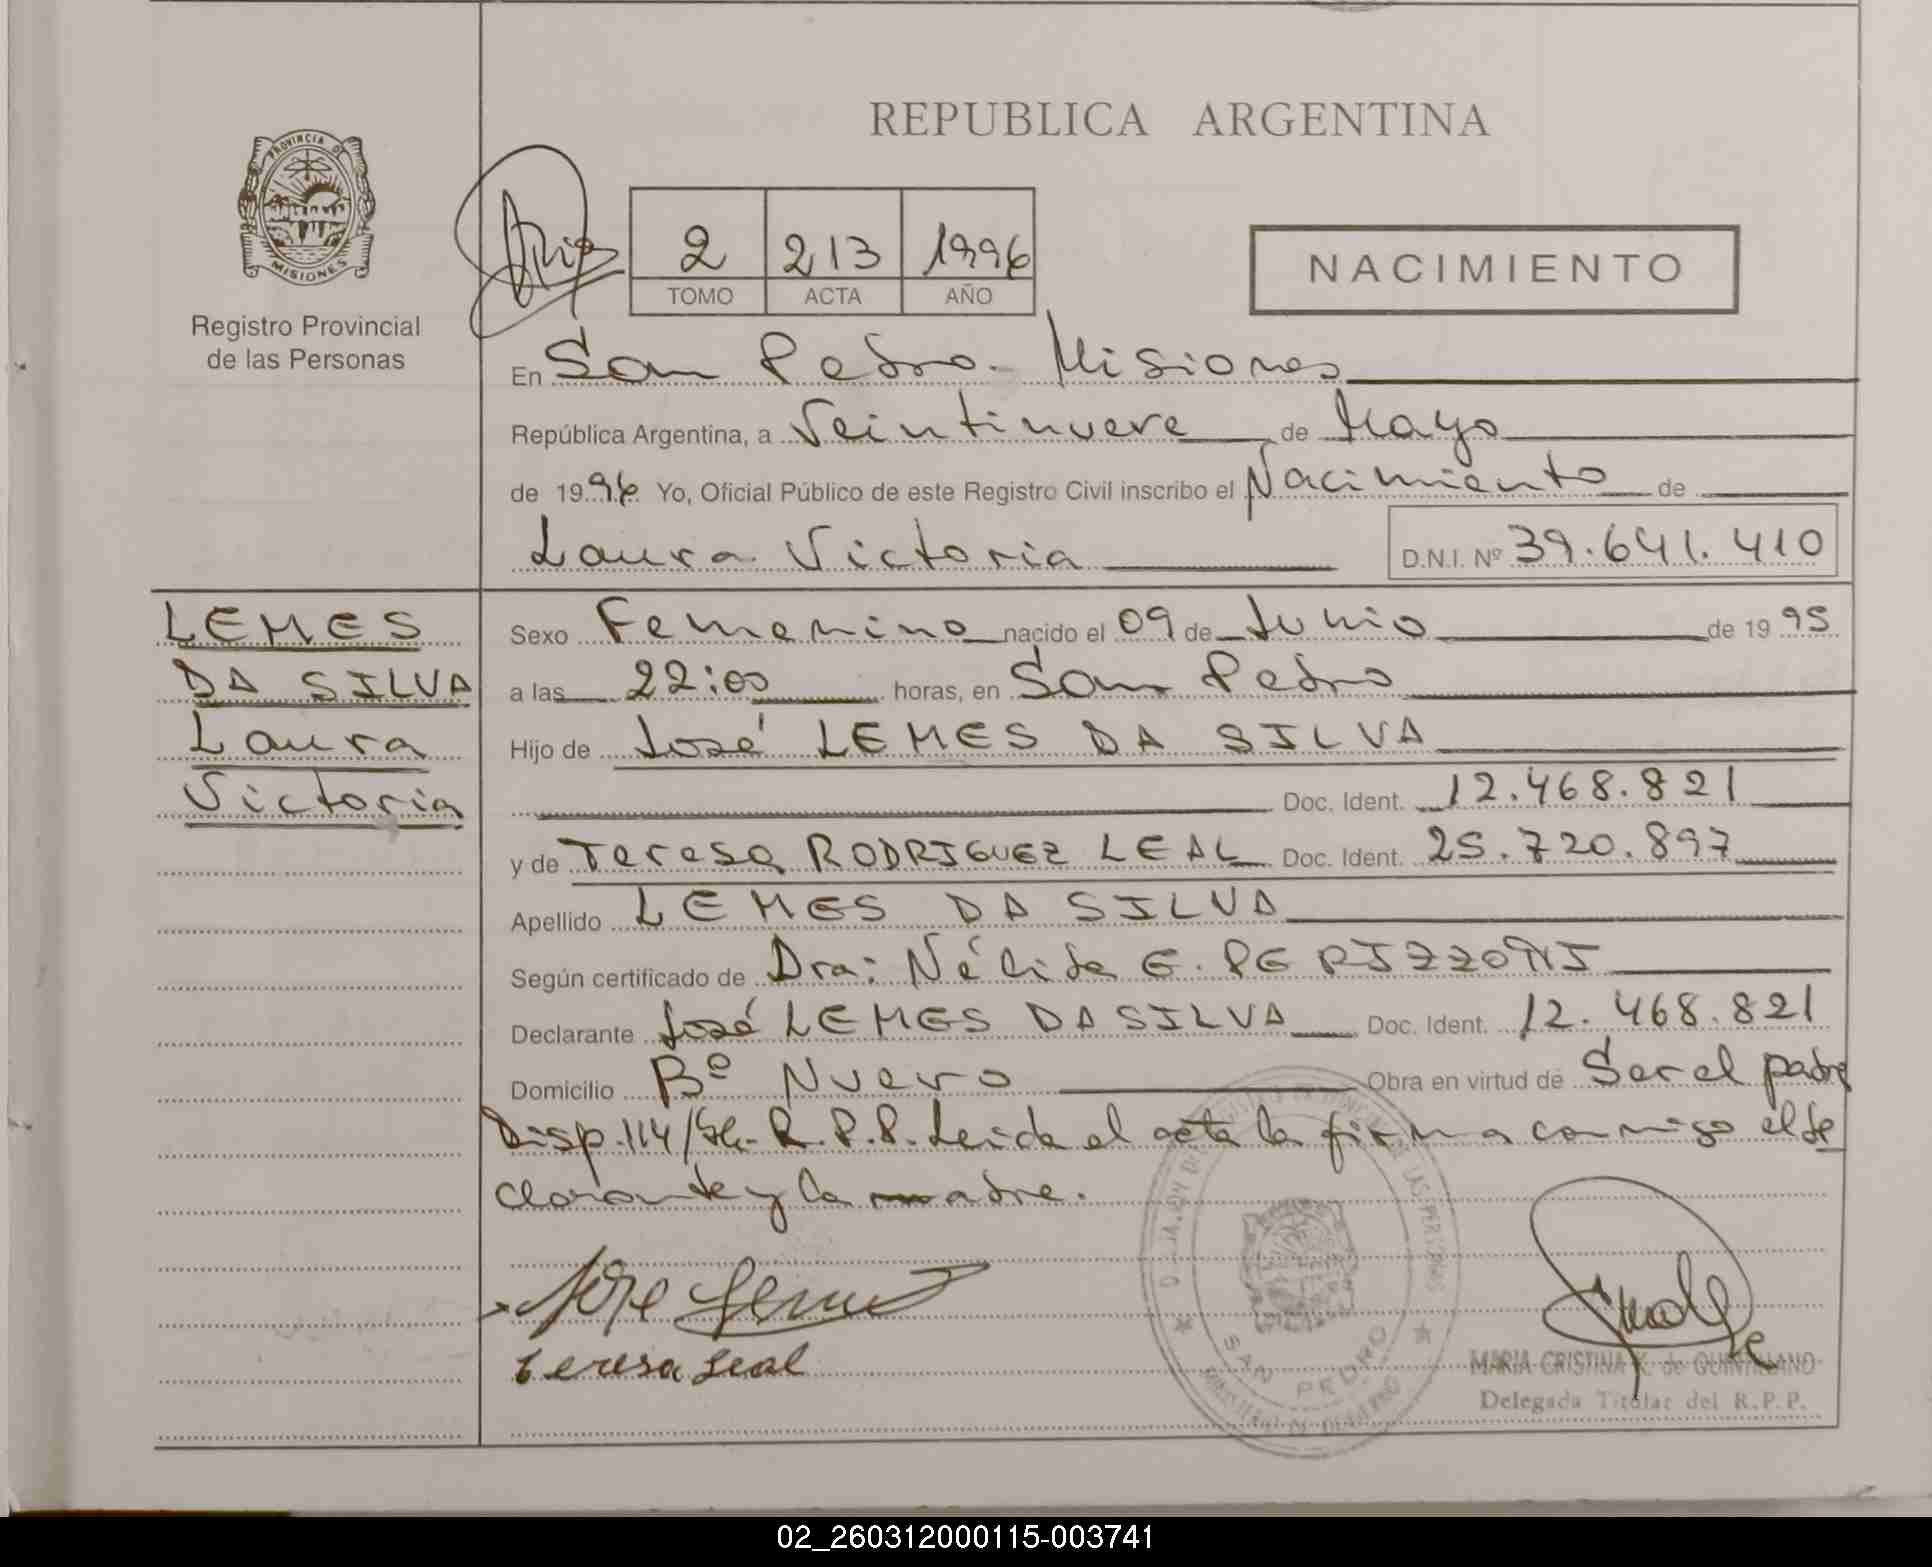 REPUBLICA ARGENTINA
PROVINCIA DE
MISIONES
Registro Provincial
de las Personas
2 213 1996
TOMO ACTA AÑO
NACIMIENTO
En San Pedro - Misiones
República Argentina, a Veintinueve de Mayo
de 1996 Yo, Oficial Público de este Registro Civil inscribo el Nacimiento de
Laura Victoria D.N.I. Nº 39.641.410
LEMES
DA SILVA
Laura
Victoria
Sexo Femenino nacido el 09 de Junio de 1995
a las 22:00 horas, en San Pedro
Hijo de José LEMES DA SILVA
Doc. Ident. 12.468.821
y de Teresa RODRIGUEZ LEAL Doc. Ident. 25.720.897
Apellido LEMES DA SILVA
Según certificado de Dra: Nélida E.
Declarante José LEMES DA SILVA Doc. Ident. 12.468.821
Domicilio Bº Nuevo Obra en virtud de Ser el padre
Disp.114/96.- R.P.P. Leida el acta la firma conmigo el de
clarante y la madre.
Jose Lemes
teresa Leal
SAN PEDRO
MARIA CRISTINA K. de QUINTILLANO
Delegada Titular del R.P.P.
02_260312000115-003741